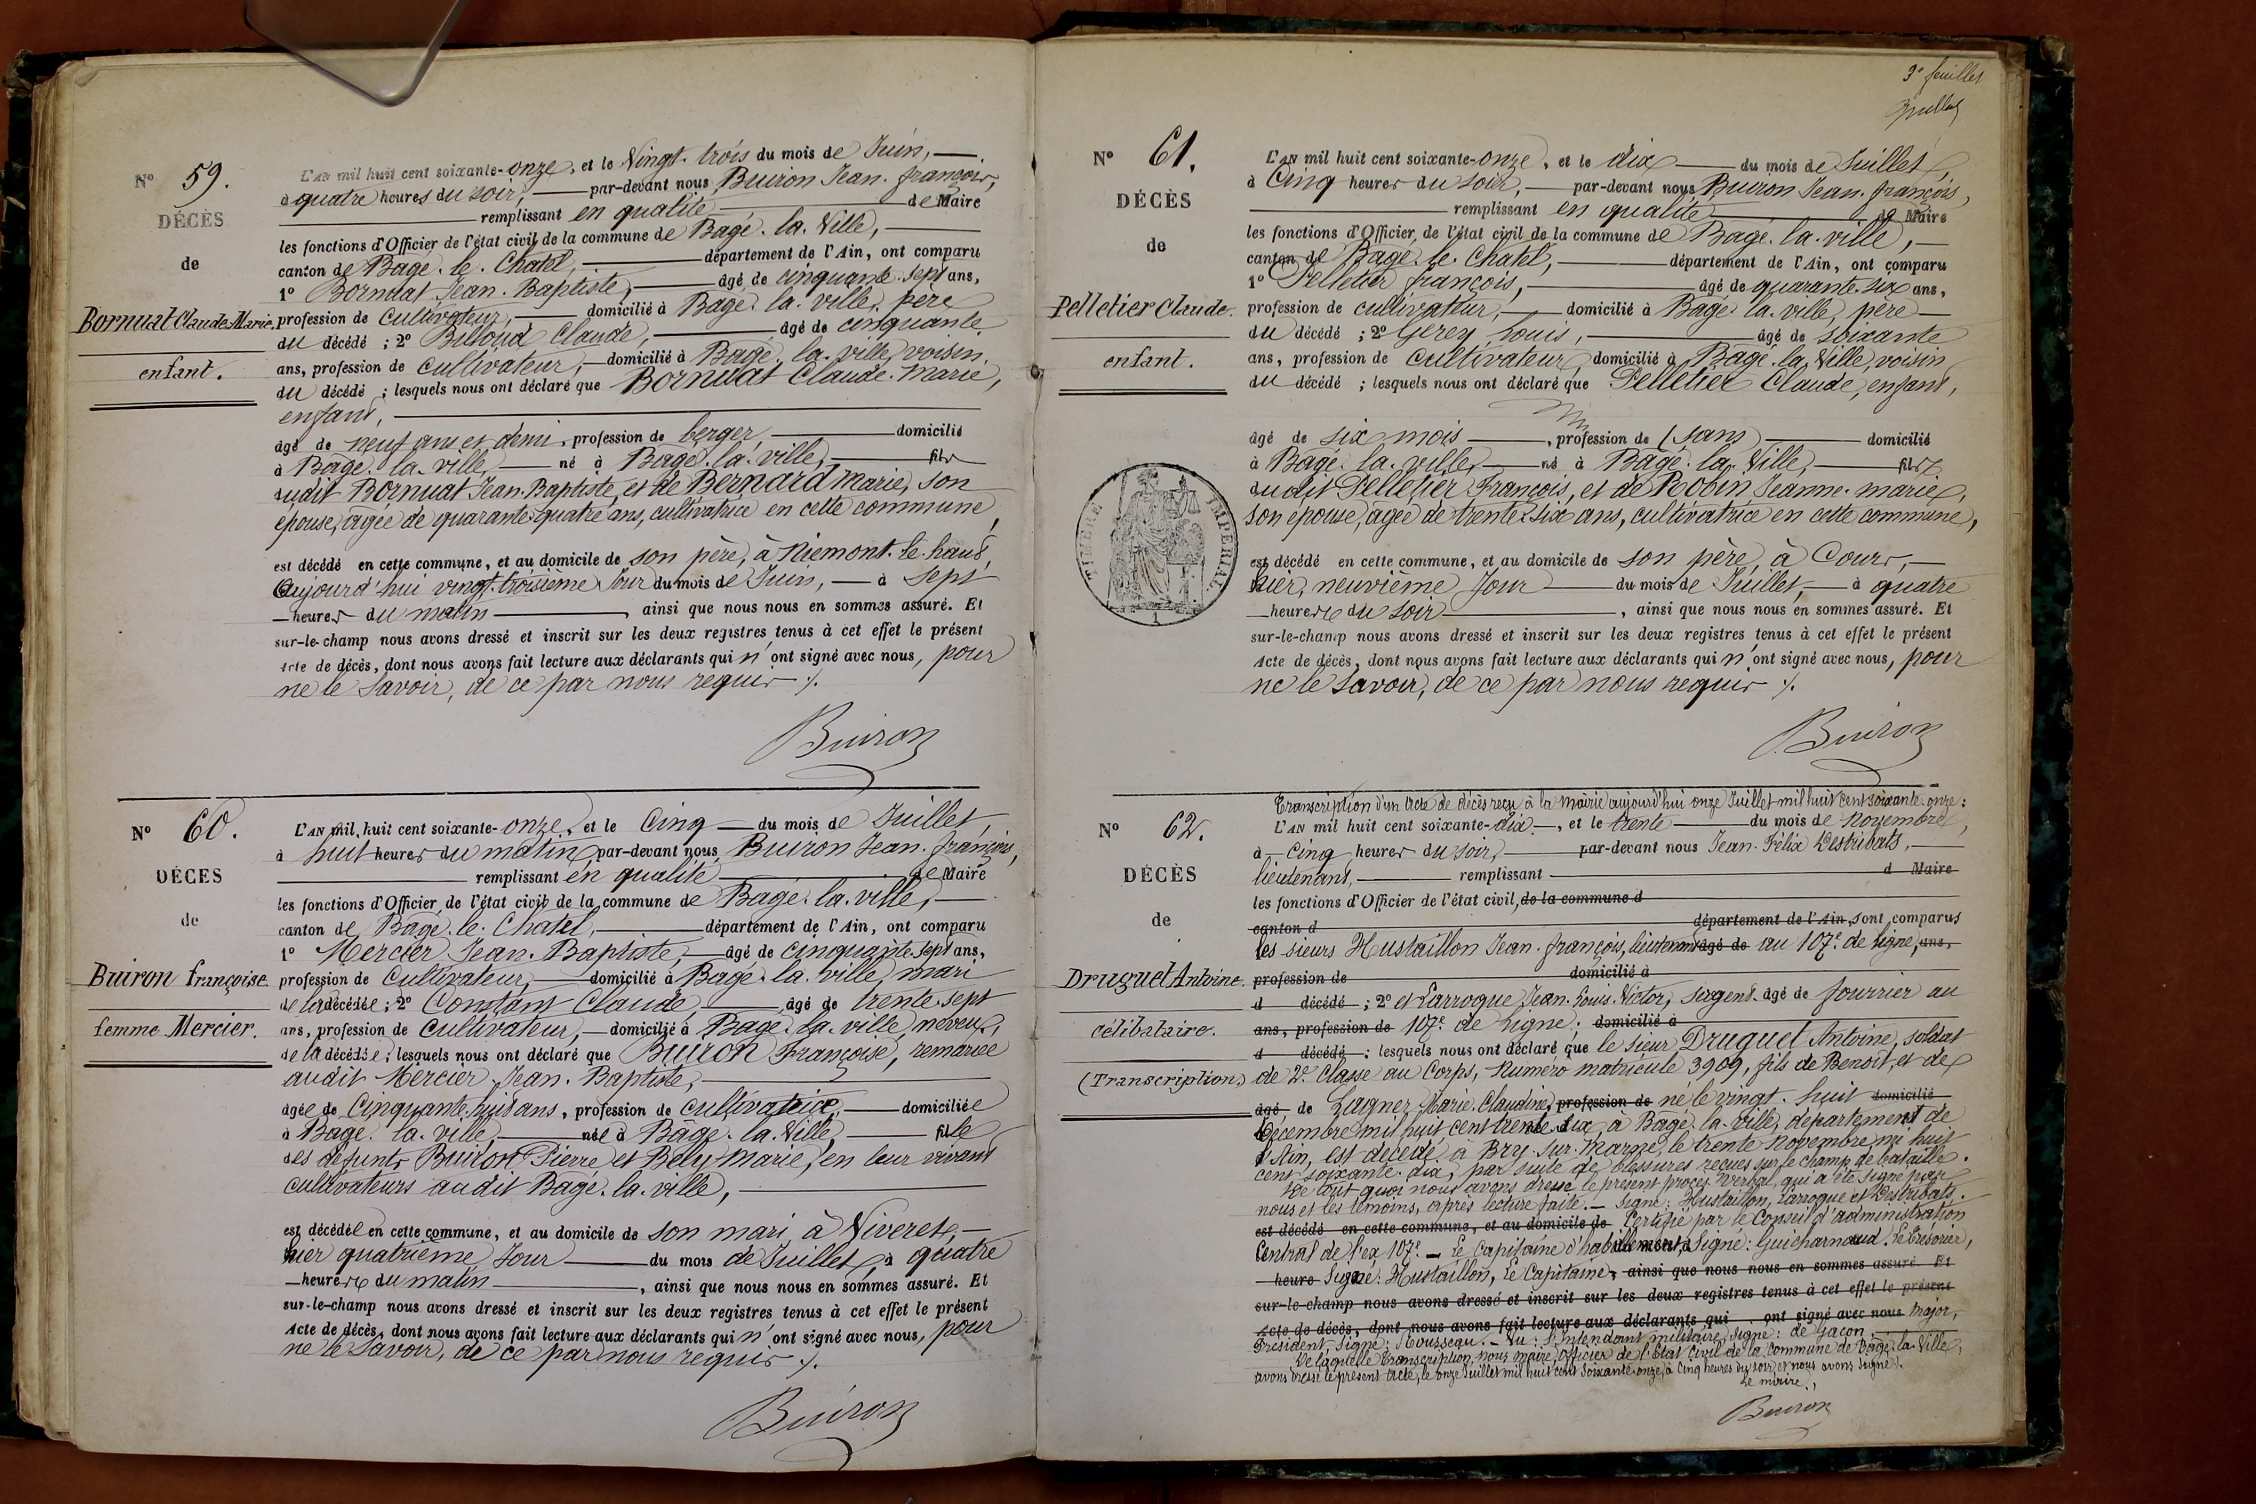 N° 59.
DÉCÈS
de
Bornuat Claude Marie,
enfant.
L'AN mil huit cent soixante-onze, et le Vingt-trois du mois de Juin,
à quatre heures du soir, par-devant nous Buiron Jean-françois,
remplissant en qualité de Maire
les fonctions d'Officier de l'état civil de la commune de Bagé-la-Ville,
canton de Bagé-le-Chatel, département de l'Ain, ont comparu
1° Bornuat Jean-Baptiste, âgé de cinquante-sept ans,
profession de Cultivateur, domicilié à Bagé-la-ville, père
du décédé ; 2° Billoud Claude, âgé de cinquante
ans, profession de Cultivateur, domicilié à Bagé-la-ville, voisin
du décédé ; lesquels nous ont déclaré que Bornuat Claude-Marie,
enfant,
âgé de neuf ans et demi, profession de berger, domicilié
à Bagé-la-ville, né à Bagé-la-ville, fils
dudit Bornuat Jean-Baptiste, et de Bernard Marie, son
épouse, âgée de quarante-quatre ans, cultivatrice en cette commune,
est décédé en cette commune, et au domicile de son père, à Riemont-le-haut,
Aujourd'hui vingt-troisième Jour du mois de Juin, à sept
heures du matin, ainsi que nous nous en sommes assuré. Et
sur-le-champ nous avons dressé et inscrit sur les deux registres tenus à cet effet le présent
Acte de décès, dont nous avons fait lecture aux déclarants qui n'ont signé avec nous, pour
ne le Savoir, de ce par nous requis ./.
Buiron
N° 60.
DÉCÈS
de
Buiron françoise
femme Mercier.
L'AN mil huit cent soixante-onze, et le Cinq du mois de Juillet,
à huit heures du matin, par-devant nous Buiron Jean-françois,
remplissant en qualité de Maire
les fonctions d'Officier de l'état civil de la commune de Bagé-la-ville,
canton de Bagé-le-Chatel, département de l'Ain, ont comparu
1° Mercier Jean-Baptiste, âgé de Cinquante sept ans,
profession de Cultivateur, domicilié à Bagé-la-ville, mari
de la décédée ; 2° Constant Claude, âgé de trente-sept
ans, profession de Cultivateur, domicilié à Bagé-la-ville, neveu,
de la décédée ; lesquels nous ont déclaré que Buiron Françoise, remariée
audit Mercier Jean-Baptiste,
âgée de Cinquante huit ans, profession de cultivatrice, domiciliée
à Bagé-la-ville, née à Bagé-la-Ville, fille
des défunts Buiron Pierre et Bely Marie, en leur vivant
cultivateurs audit Bagé-la-ville,
est décédée en cette commune, et au domicile de son mari, à Viveret,
hier quatrième Jour du mois de Juillet, à quatre
heures du matin, ainsi que nous nous en sommes assuré. Et
sur-le-champ nous avons dressé et inscrit sur les deux registres tenus à cet effet le présent
Acte de décès, dont nous avons fait lecture aux déclarants qui n'ont signé avec nous, pour
ne le Savoir, de ce par nous requis ./.
Buiron
3e feuillet
N° 61.
DÉCÈS
de
Pelletier Claude.
enfant.
TIMBRE IMPERIAL
1
L'AN mil huit cent soixante-onze, et le dix du mois de Juillet,
à Cinq heures du soir, par-devant nous Buiron Jean-françois,
remplissant en qualité de Maire
les fonctions d'Officier de l'état civil de la commune de Bagé-la-ville,
canton de Bagé-le-Chatel, département de l'Ain, ont comparu
1° Pelletier françois, âgé de quarante-six ans,
profession de cultivateur, domicilié à Bagé-la-ville, père
du décédé ; 2° Gerey Louis, âgé de soixante
ans, profession de Cultivateur, domicilié à Bagé-la-Ville, voisin
du décédé ; lesquels nous ont déclaré que Pelletier Claude, enfant,
âgé de six mois, profession de (sans) domicilié
à Bagé-la-ville, né à Bagé-la-Ville, fils
dudit Pelletier François, et de Robin Jeanne-marie,
son épouse, âgée de trente-six ans, cultivatrice en cette commune,
est décédé en cette commune, et au domicile de son père, à Cours,
hier, neuvième Jour du mois de Juillet, à quatre
heures du soir, ainsi que nous nous en sommes assuré. Et
sur-le-champ nous avons dressé et inscrit sur les deux registres tenus à cet effet le présent
Acte de décès, dont nous avons fait lecture aux déclarants qui n'ont signé avec nous, pour
ne le savoir, de ce par nous requis ./.
Buiron
N° 62.
DÉCÈS
de
Druguet Antoine.
célibataire.
(Transcription)
Transcription d'un Acte de décès reçu à la mairie aujourd'hui onze Juillet mil huit cent soixante-onze :
L'AN mil huit cent soixante-dix, et le trente du mois de Novembre,
à Cinq heures du soir, par-devant nous Jean-Félix Destribats,
lieutenant, remplissant d Maire
les fonctions d'Officier de l'état civil, de la commune d
canton d département de l'Ain, sont comparus
les sieurs Hustaillon Jean-françois, lieutenant âgé de au 107e de ligne, ans,
profession de domicilié à
d décédé ; 2° et Larroque Jean-Louis-Victor, sergent-âgé de fourrier au
ans, profession de 107e de Ligne : domicilié à
d décédé ; lesquels nous ont déclaré que le sieur Druguet Antoine, soldat
de 2e Classe au Corps, Numéro matricule 3909, fils de Benoit, et de
âgé de Lagner Marie-Claudine, profession de né le vingt-huit domicilié
Décembre mil huit cent trente-dix, à Bagé-la-ville, département de
l'Ain, est décédé à Bry-sur-Marne, le trente Novembre mil huit
cent soixante-dix, par suite de blessures reçues sur le champ de bataille.
De tout quoi nous avons dressé le présent procès verbal qui a été signé par
nous et les témoins, après lecture faite. — Signé : Hustaillon, Larroque et Destribats.
est décédé en cette commune, et au domicile de Certifié par le Conseil d'administration
Central de l'ex 107e — Le Capitaine d'habillement, Signé : Guicharnaud. Le trésorier,
heure Signé : Hustaillon, Le Capitaine, ainsi que nous nous en sommes assuré. Et
sur-le-champ nous avons dressé et inscrit sur les deux registres tenus à cet effet le présent
Acte de décès, dont nous avons fait lecture aux déclarants qui ont signé avec nous major,
Président, Signé : Mousseau. — Vu : L'Intendant militaire, Signé : de Gacon.
De laquelle transcription, nous maire, Officier de l'Etat Civil de la Commune de Bagé-la-Ville,
avons dressé le présent Acte, le onze Juillet mil huit cent soixante-onze, à Cinq heures du soir, et nous avons signé ./.
Le maire,
Buiron